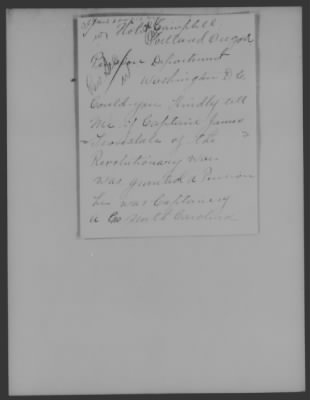 Hotel Campbell
Portland Oregon
Department
Washington D C
Could you kindly tell
me if Captain James
of the
Revolutionary war
was granted a Pension
he was Captain of
a Co North Carolina